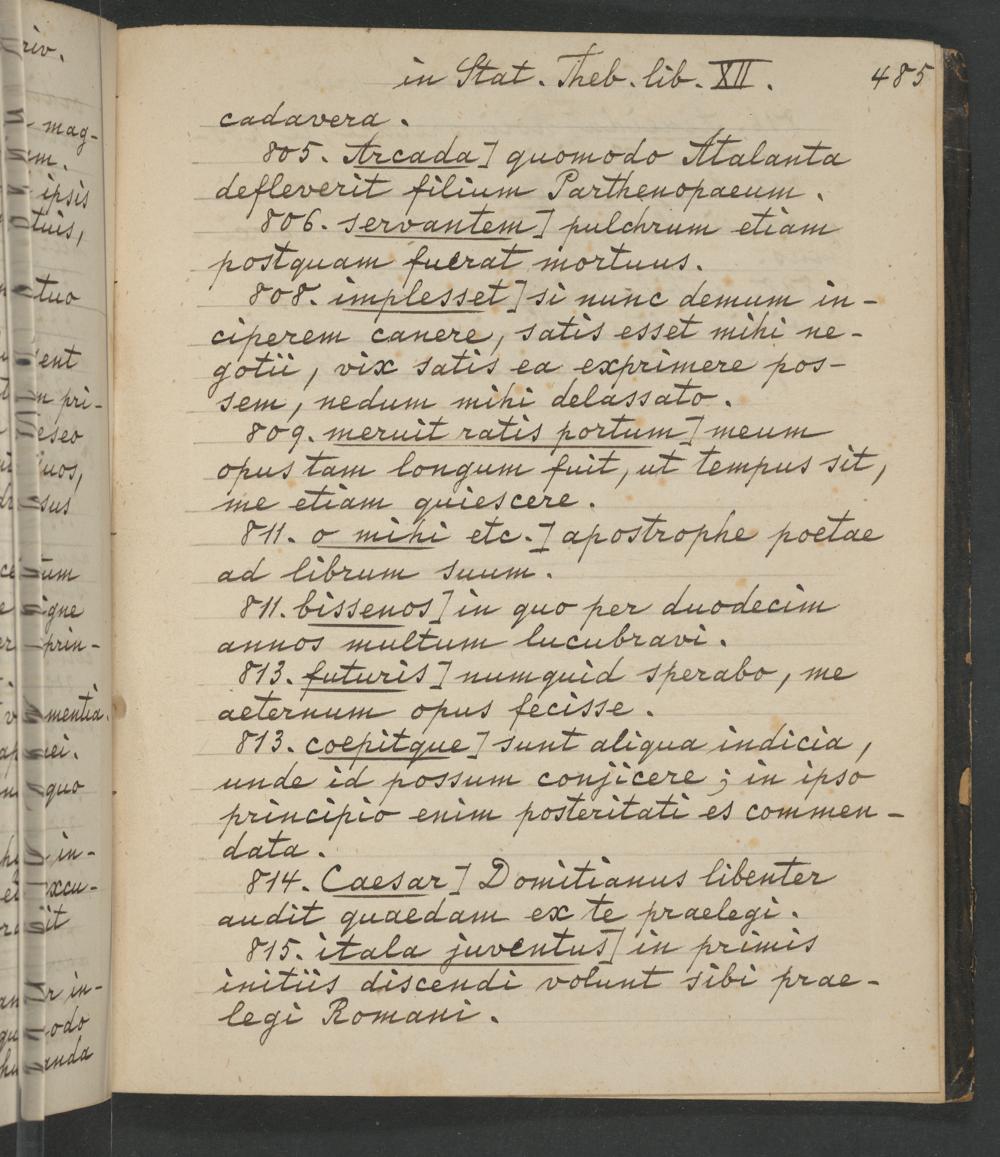 in Stat. Theb. lib. XII. 485
cadavera.
805. Arcada] quomodo Atalanta
defleverit filium Parthenopaeum.
806. servantem] pulchrum etiam
postquam fuerat mortuus.
808. implesset] si nunc demum in-
ciperem canere, satis esset mihi ne-
gotii, vix satis ea exprimere pos-
sem, nedum mihi delassato.
809. meruit ratis portum] meum
opus tam longum fuit, ut tempus sit,
me etiam quiescere.
811. o mihi etc.] apostrophe poetae
ad librum suum.
811. bissenos] in quo per duodecim
annos multum lucubravi.
813. futuris] numquid sperabo, me
aeternum opus fecisse.
813. coepitque] sunt aliqua indicia,
unde id possum conjicere; in ipso
principio enim posteritati es commen-
data.
814. Caesar] Domitianus libenter
audit quaedam ex te praelegi.
815. itala juventus] in primis
initiis discendi volunt sibi prae-
legi Romani.